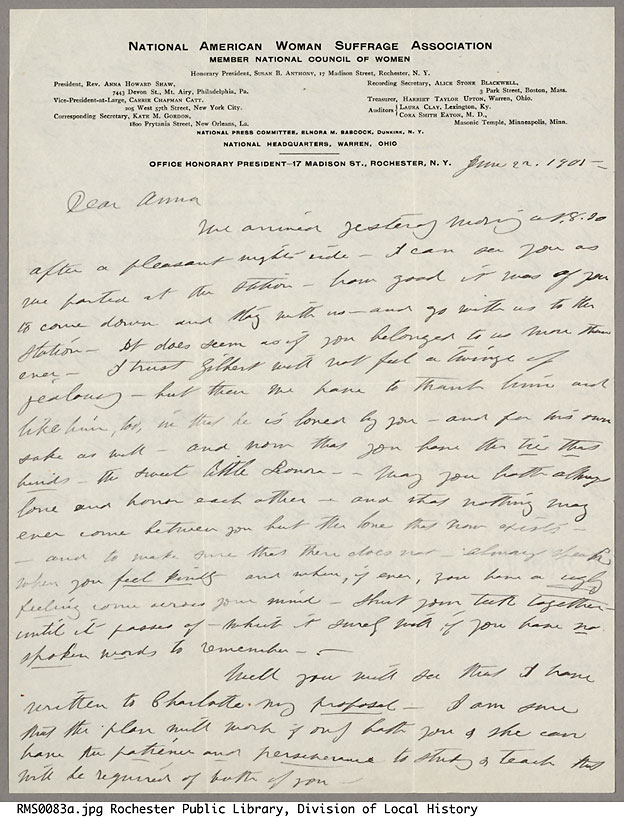 NATIONAL AMERICAN WOMAN SUFFRAGE ASSOCIATION
MEMBER NATIONAL COUNCIL OF WOMEN
Honorary President, SUSAN B. ANTHONY, 17 Madison Street, Rochester, N. Y.
President, REV. ANNA HOWARD SHAW,
7443 Devon St., Mt. Airy, Philadelphia, Pa.
Vice-President-at-Large, CARRIE CHAPMAN CATT,
205 West 57th Street, New York City.
Corresponding Secretary, KATE M. GORDON,
1800 Prytania Street, New Orleans, La.
Recording Secretary, ALICE STONE BLACKWELL,
3 Park Street, Boston, Mass.
Treasurer, HARRIET TAYLOR UPTON, Warren, Ohio.
Auditors { LAURA CLAY, Lexington, Ky.
CORA SMITH EATON, M. D.,
Masonic Temple, Minneapolis, Minn.
NATIONAL PRESS COMMITTEE, ELNORA M. BABCOCK, DUNKIRK, N. Y.
NATIONAL HEADQUARTERS, WARREN, OHIO
OFFICE HONORARY PRESIDENT—17 MADISON ST., ROCHESTER, N. Y.
June 22. 1905—
Dear Anna
We arrived yesterday at 8.20
after a pleasant night's ride — I can see you as
we parted at the station — how good it was of you
to come down and stay with us — and go with us to the
station — It does seem as if you belonged to us more than
ever — I trust Gilbert will not feel a twinge of
jealousy — but then we have to thank him and
like him, too, in that he is loved by you — and for his own
sake as well — and now that you have the tie that
binds — the sweet little — may you both always
love and honor each other — and that nothing may
ever come between you but the love that now exists —
— and to make sure that there does not — always speak
when you feel kindly and when, if ever, you have a ugly
feeling come across your mind — shut your teeth together
until it passes off — which it surely will if you have no
spoken words to remember —
Well you will see that I have
written to Charlotte my proposal — I am sure
that the plan will work if only both you & she can
have the patience and perseverance to study & teach that
will be required of both of you —
RMS0083a.jpg Rochester Public Library, Division of Local History